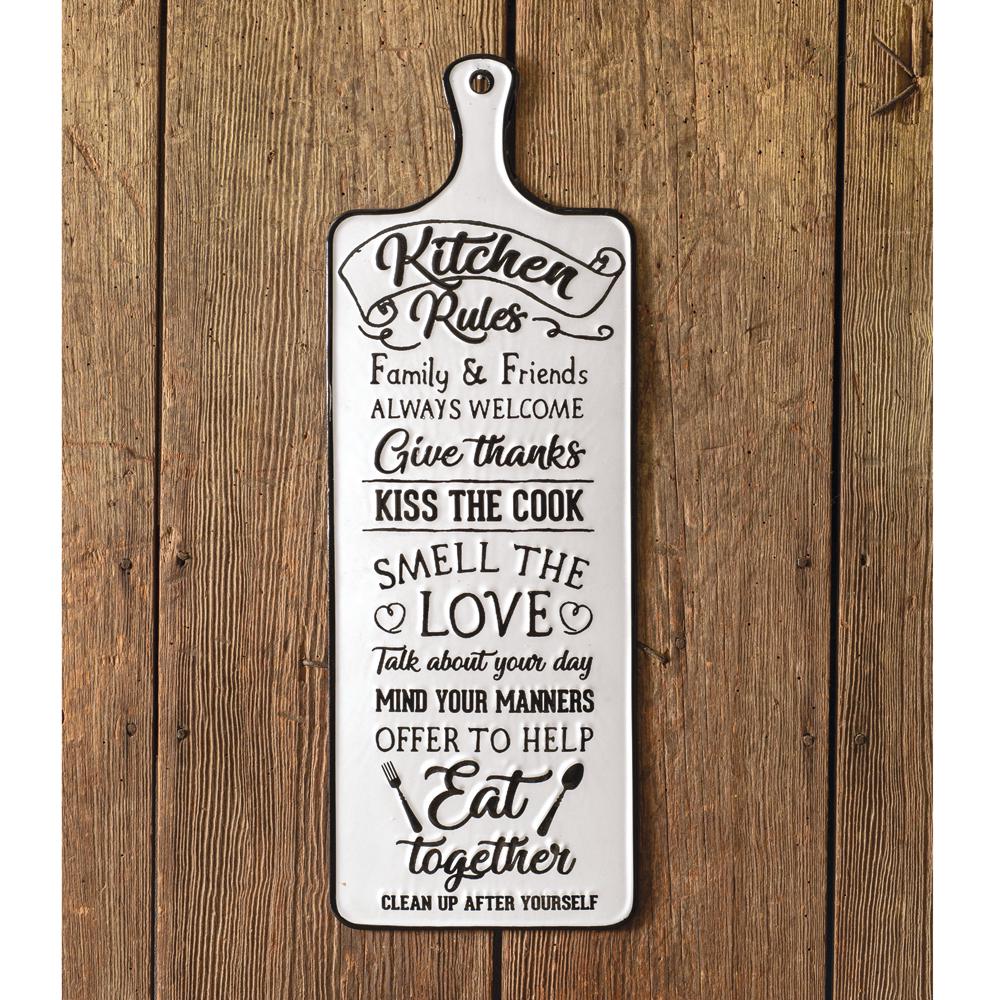 Kitchen
Rules
Family & Friends
ALWAYS WELCOME
Give thanks
KISS THE COOK
SMELL THE
LOVE
Talk about your day
MIND YOUR MANNERS
OFFER TO HELP
Eat
together
CLEAN UP AFTER YOURSELF